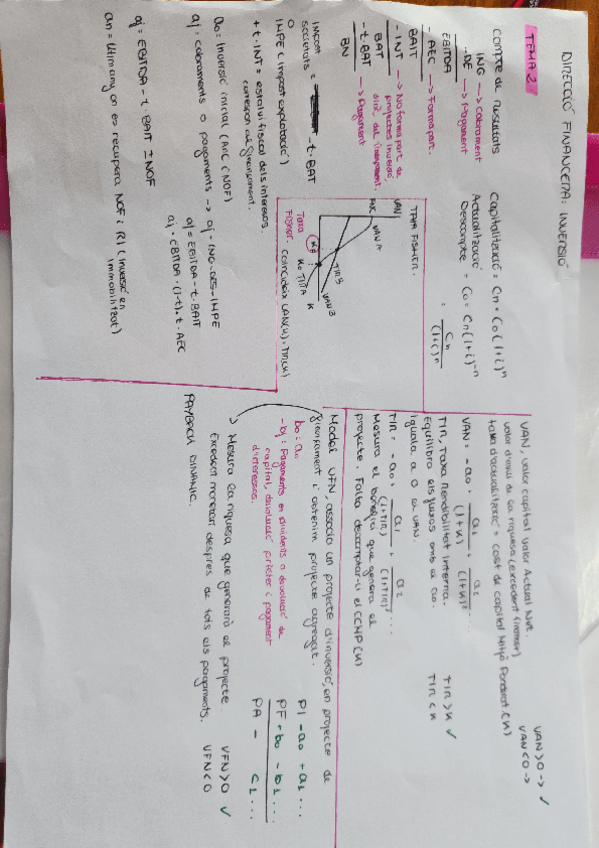 DIRECCIÓ FINANCERA: INVERSIÓ
TEMA 2
Compte de resultats
ING → Cobrament
- DE → Pagament
EBITDA
- AEC → Forma part.
BAIT
- INT → No forma part de
projectes inversió
sinó, del finançament.
BAT
- t·BAT → Pagament
BN
Impost
societats = - t·BAT
o
IMPE (impost explotació)
+ t·INT = estalvi fiscal dels interessos.
correspon al finançament.
a0 = Inversió inicial (ANC (NOF)
aj: cobraments o pagaments → aj = ING-DES-IMPE
aj = EBITDA - t·BAIT
aj = EBITDA·(1-t)+t·AEC
aj = EBITDA - t·BAIT ± NOF
an = Últim any on es recupera NOF i RI (Inversió en
immobilitzat)
Capitalització = Cn = C0(1+i)^n
Actualització
Descompte = C0 = Cn(1+i)^-n
= Cn
(1+i)^n
TAXA FISHER.
VAN
VAN A
TIR B
VAN B
KA
K0
TIR A
K
Taxa
Fisher. Coincideix VAN(K) = TIR(K)
VAN, valor capital Valor Actual Net.
valor d'avui de la riquesa (excedent financer)
taxa d'actualització = Cost de capital Mitjà Ponderat (K)
VAN>0 → ✓
VAN<0 →
VAN = -a0 + a1/(1+K) + a2/(1+K)² ...
TIR, Taxa Rendibilitat Interna.
TIR > K ✓
TIR < K
Equilibra els fluxos amb el a0.
iguala a 0 el VAN.
TIR = -a0 + a1/(1+TIR) + a2/(1+TIR)² ...
Mesura el benefici que genera el
projecte. Falta descomptar-li el CCMP (K)
Model VFN, associa un projecte d'inversió, en projecte de
finançament i obtenim projecte agregat.
b0 = a0
- bj: pagaments en dividents o devolució de
capital, devolució préstec i pagament
d'interessos.
PI - a0 + a1 ...
PF + b0 - b1 ...
PA - C1 ...
→ Mesura la riquesa que generarà el projecte.
Excedent monetari després de tots els pagaments.
VFN>0 ✓
VFN<0
PAYBACK DINÀMIC.